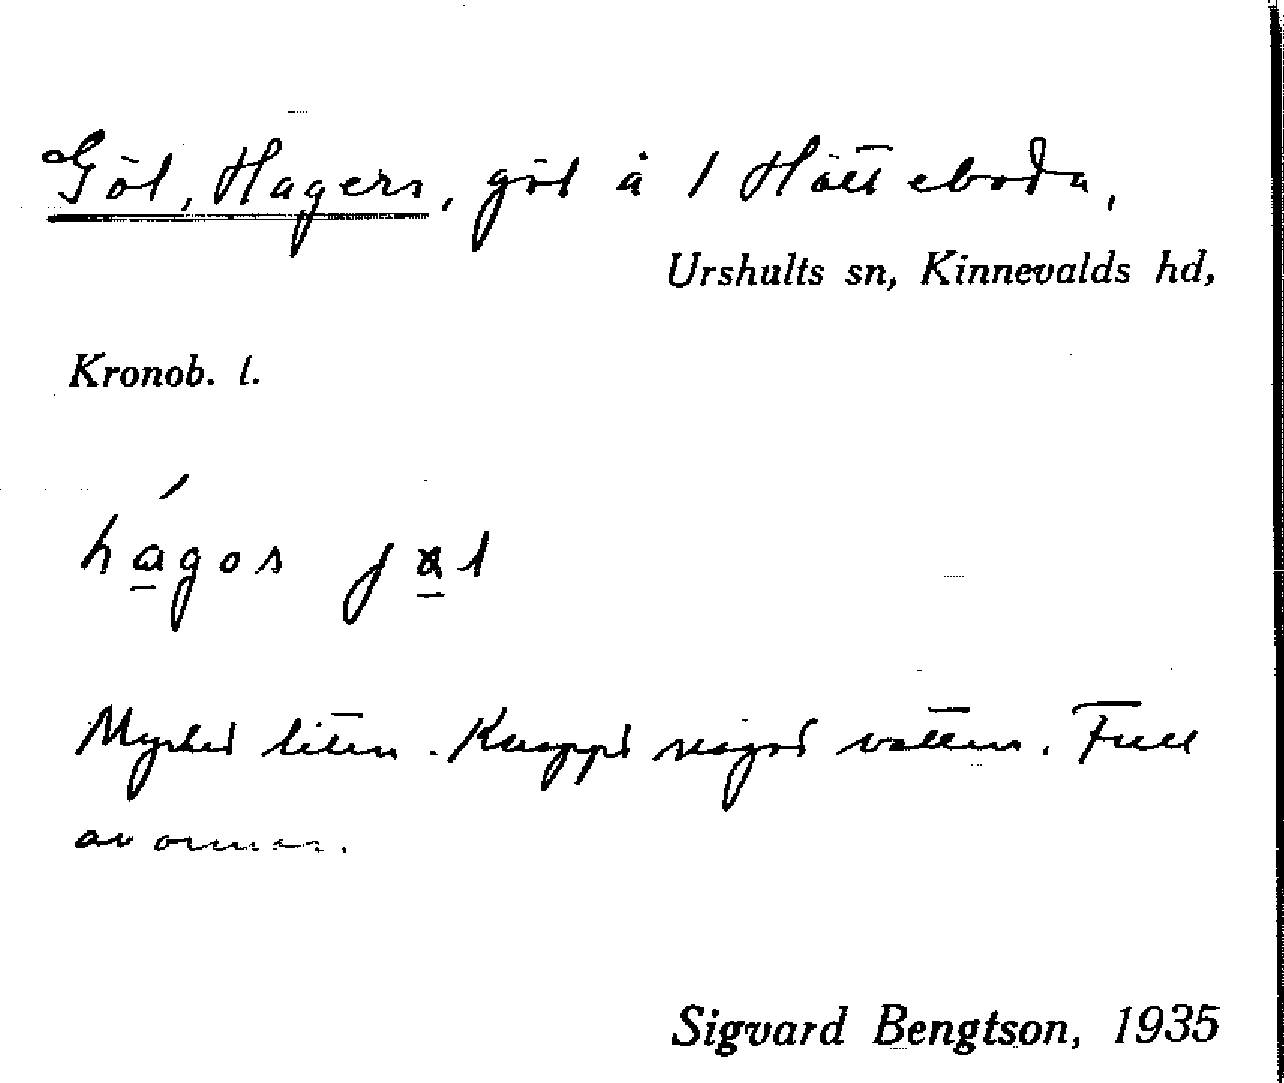 Göl, Hagers, göl å 1 Hätteboda,
Urshults sn, Kinnevalds hd,
Kronob. l.
hágos jøl
Mycket liten. Knappt något vatten. Full
av ormar.
Sigvard Bengtson, 1935